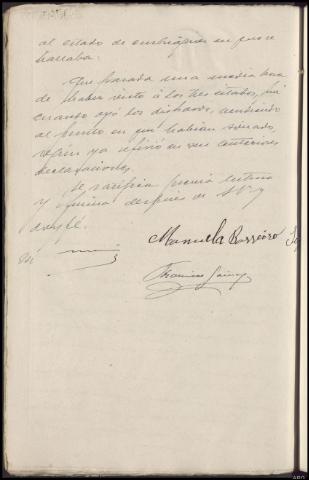 al estado de embriaguez en que se
hallaba.
Que pasada una media hora
de haber visto á los tres citados, fué
cuando oyó los disparos, acudiendo
al punto en que habían sonado,
según ya refirió en sus anteriores
declaraciones.
Se ratifica previa lectura
y firma después de S.S. y
doy fé.
Manuela Barreiro
Francisco